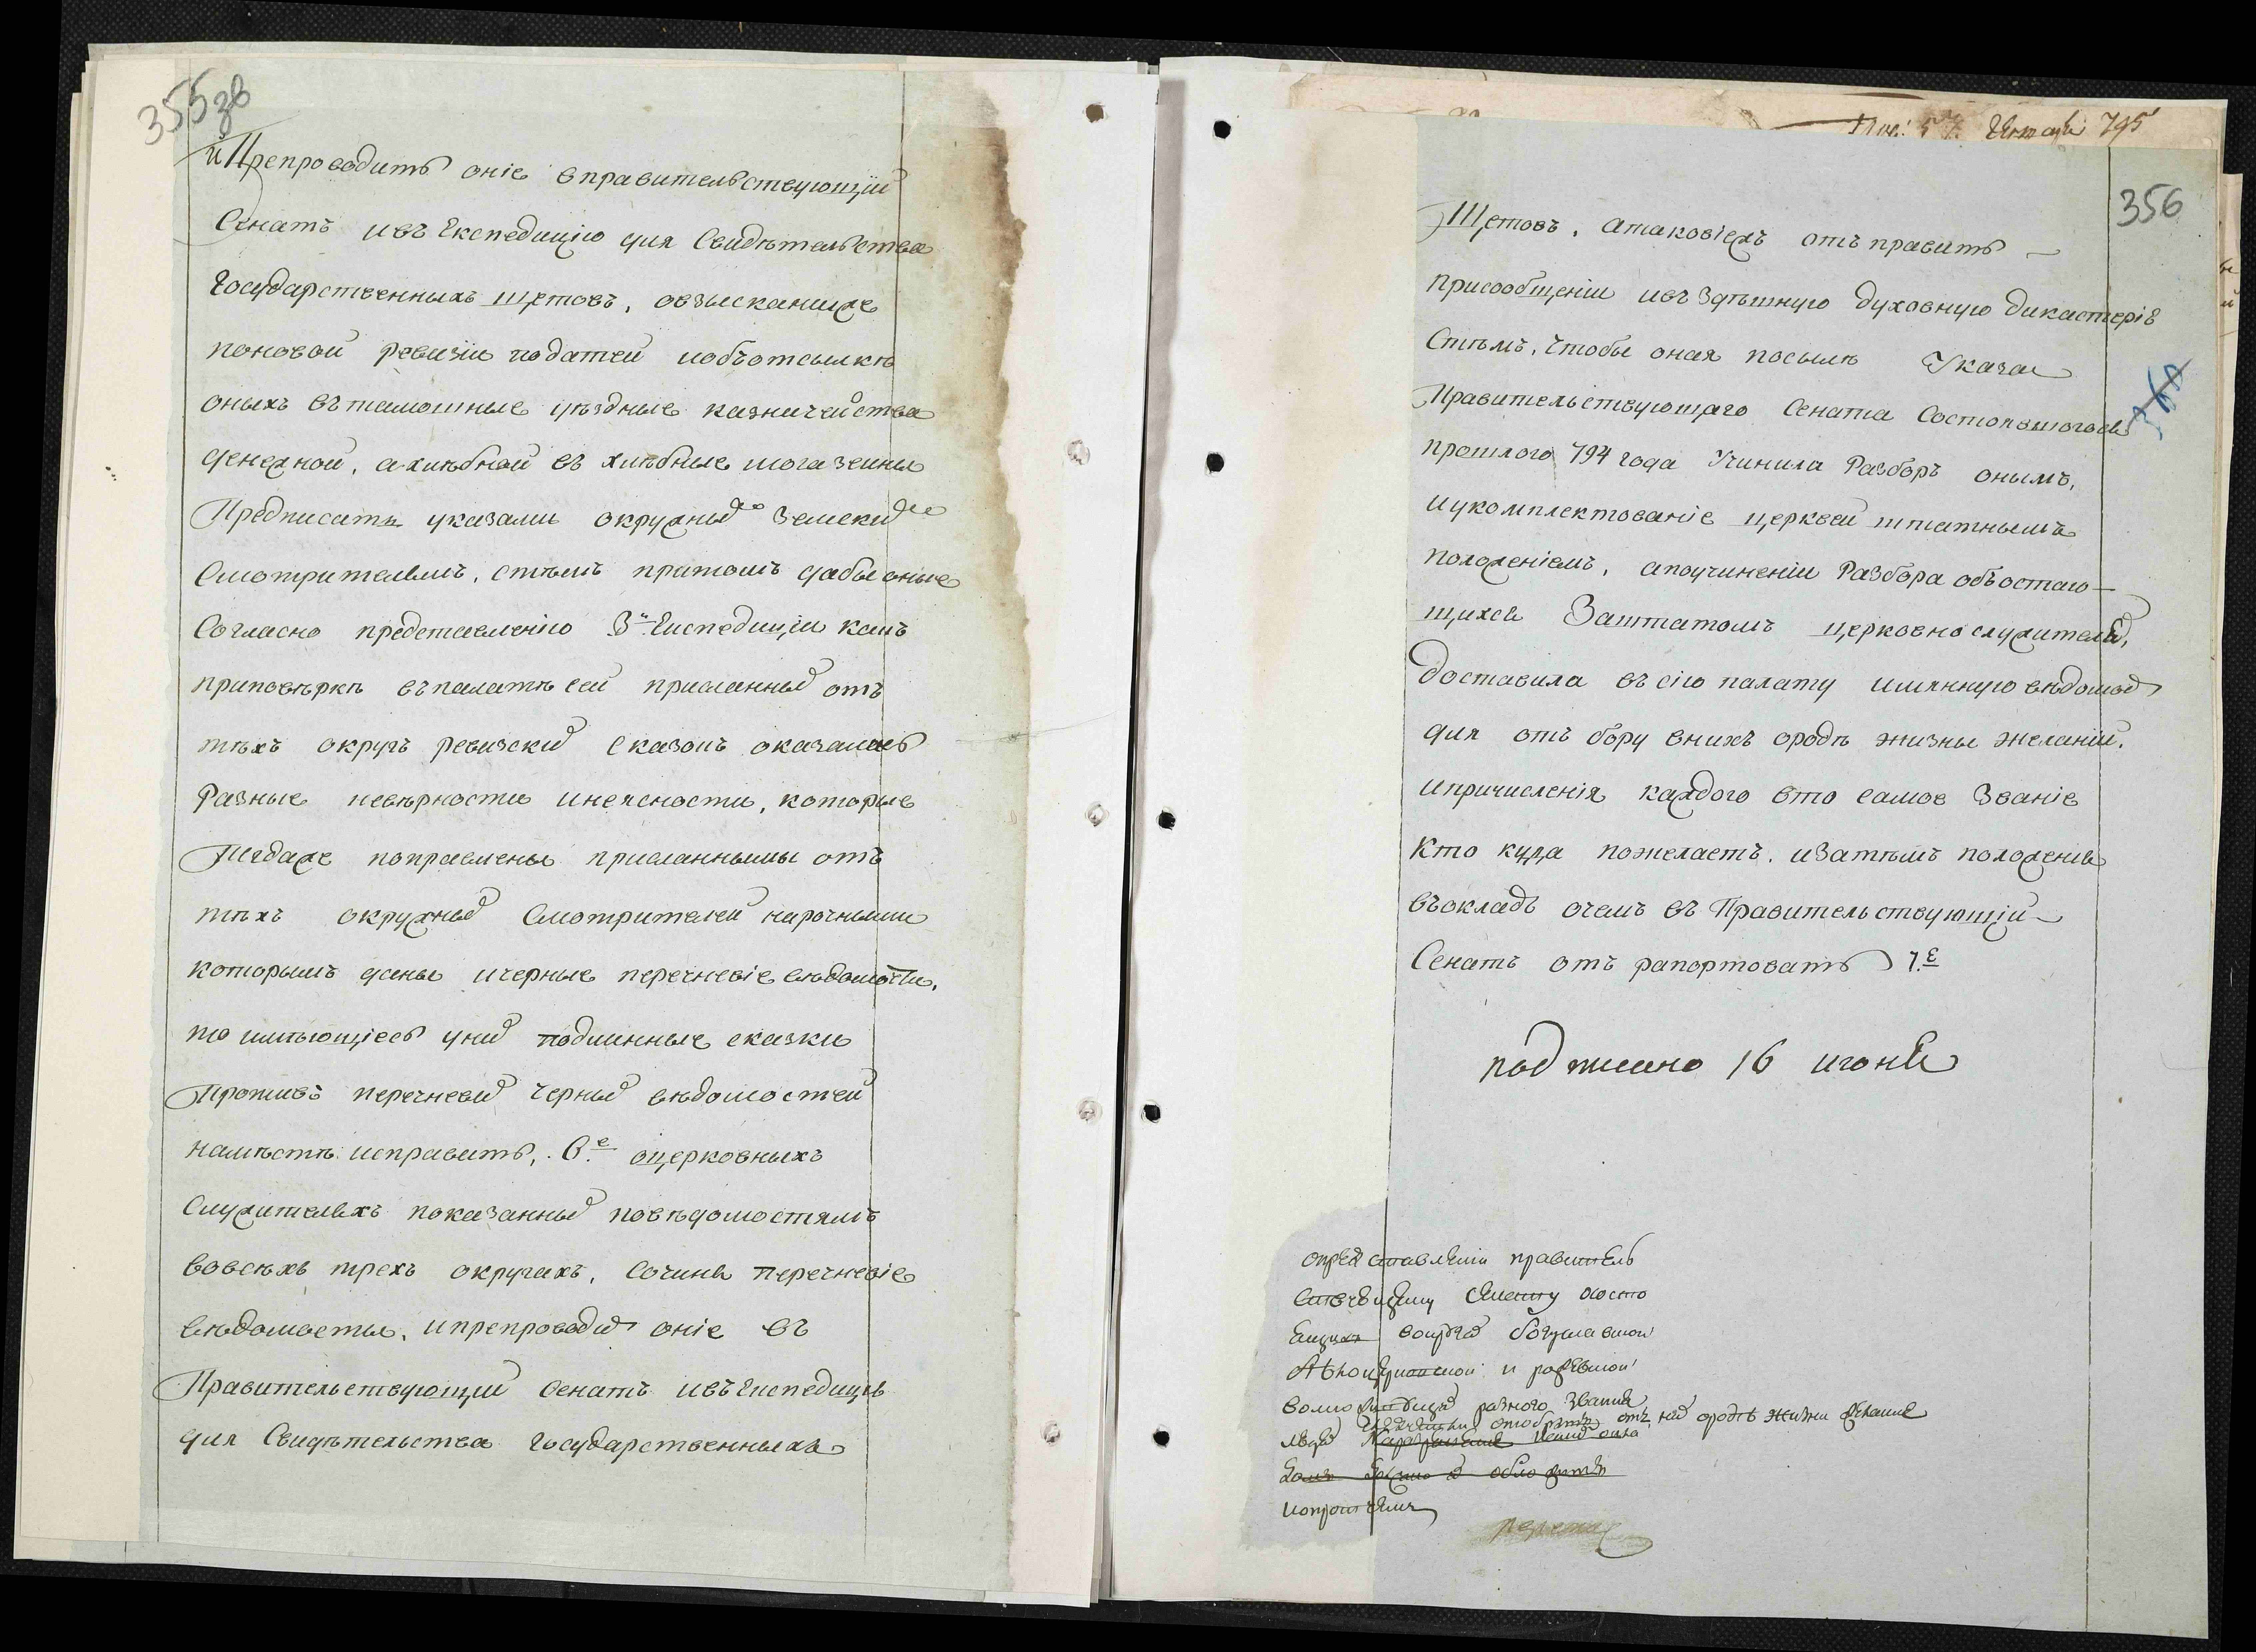 355 зв
и Препроводить оніе вправительствующій
Сенатъ ивъ Експедицію для Свидѣтельства
Государственныхъ щетовъ, овзысканииже
поновой ревизіи податей иобъотсылкѣ
оныхъ вътамошные уѣздные казначейства
денежной, ахлѣбной въ хлѣбные могазеины
Предписать указами окружны^м Земски^м
Смотрителямъ, стѣмъ притомъ дабы оные
Согласно представленію 3^й Експедиціи какъ
приповѣркѣ въпалатѣ сей присланных отъ
тѣхъ округъ ревизских сказокъ оказались
Разные невѣрности инеясности, которые
тогдаже поправлены присланными отъ
тѣхъ окружных Смотрителей нарочными
которымъ даны ичерные перечневіе вѣдомости,
то имѣющіесь уних подлинные сказки
Противъ перечневых черных вѣдомостей
намѣстѣ исправить, 6^е оцерковныхъ
Служителяхъ показанных повѣдомостямъ
вовсѣхъ трехъ округахъ, Сочиня перечневіе
вѣдомосты, ипрепроводить оніе въ
Правительствующій Сенатъ ивъ Експедицію
для Свидѣтельства государственныхъ
795
356
Щетовъ, атаковіежъ отъправить
присообщеніи ивъ здѣшную духовную дикастерію
Стѣмъ, чтобы оная посилѣ Указа
Правительствующаго Сената Состоявшогося
прошлого 794 года Учинила Разборъ онымъ,
иукомплектованіе церквей штатнымъ
положеніемъ, апоучиненіи Разбора объостаю-
щихся Заштатомъ церковнослужителях,
доставила въ сію палату имянную вѣдомость
для отъ бору внихъ ородѣ жизны желаніи.
ипричисленія каждого вто самое Званіе
кто куда пожелаетъ. изатѣмъ положенія
въокладъ очемъ въ Правительствующій
Сенатъ отъ рапортовать 7^е
подписано 16 июня
опредставленіи правитель
ствующему сенату ососто
ящихъ вокруге богуславской
и
разного звания
отобрать от них ородѣ жизни желание
ипротчемъ